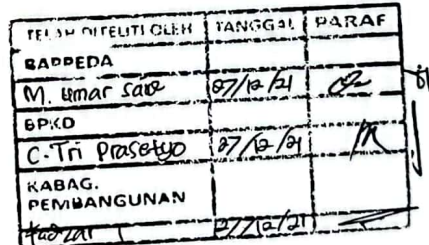 TELAH DITELITI OLEH TANGGAL PARAF
BAPPEDA
M. Umar 27/12/21
BPKD
C. Tri Prasetyo 27/12/21
KABAG.
PEMBANGUNAN
27/12/21